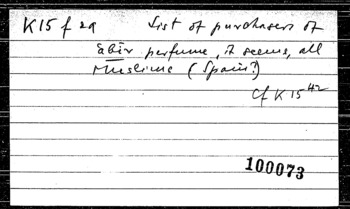 K15 f 29 List of purchasers of
ʿabīr perfume, it seems, all
Muslims (Spain?)
Cf K 15 42
100073